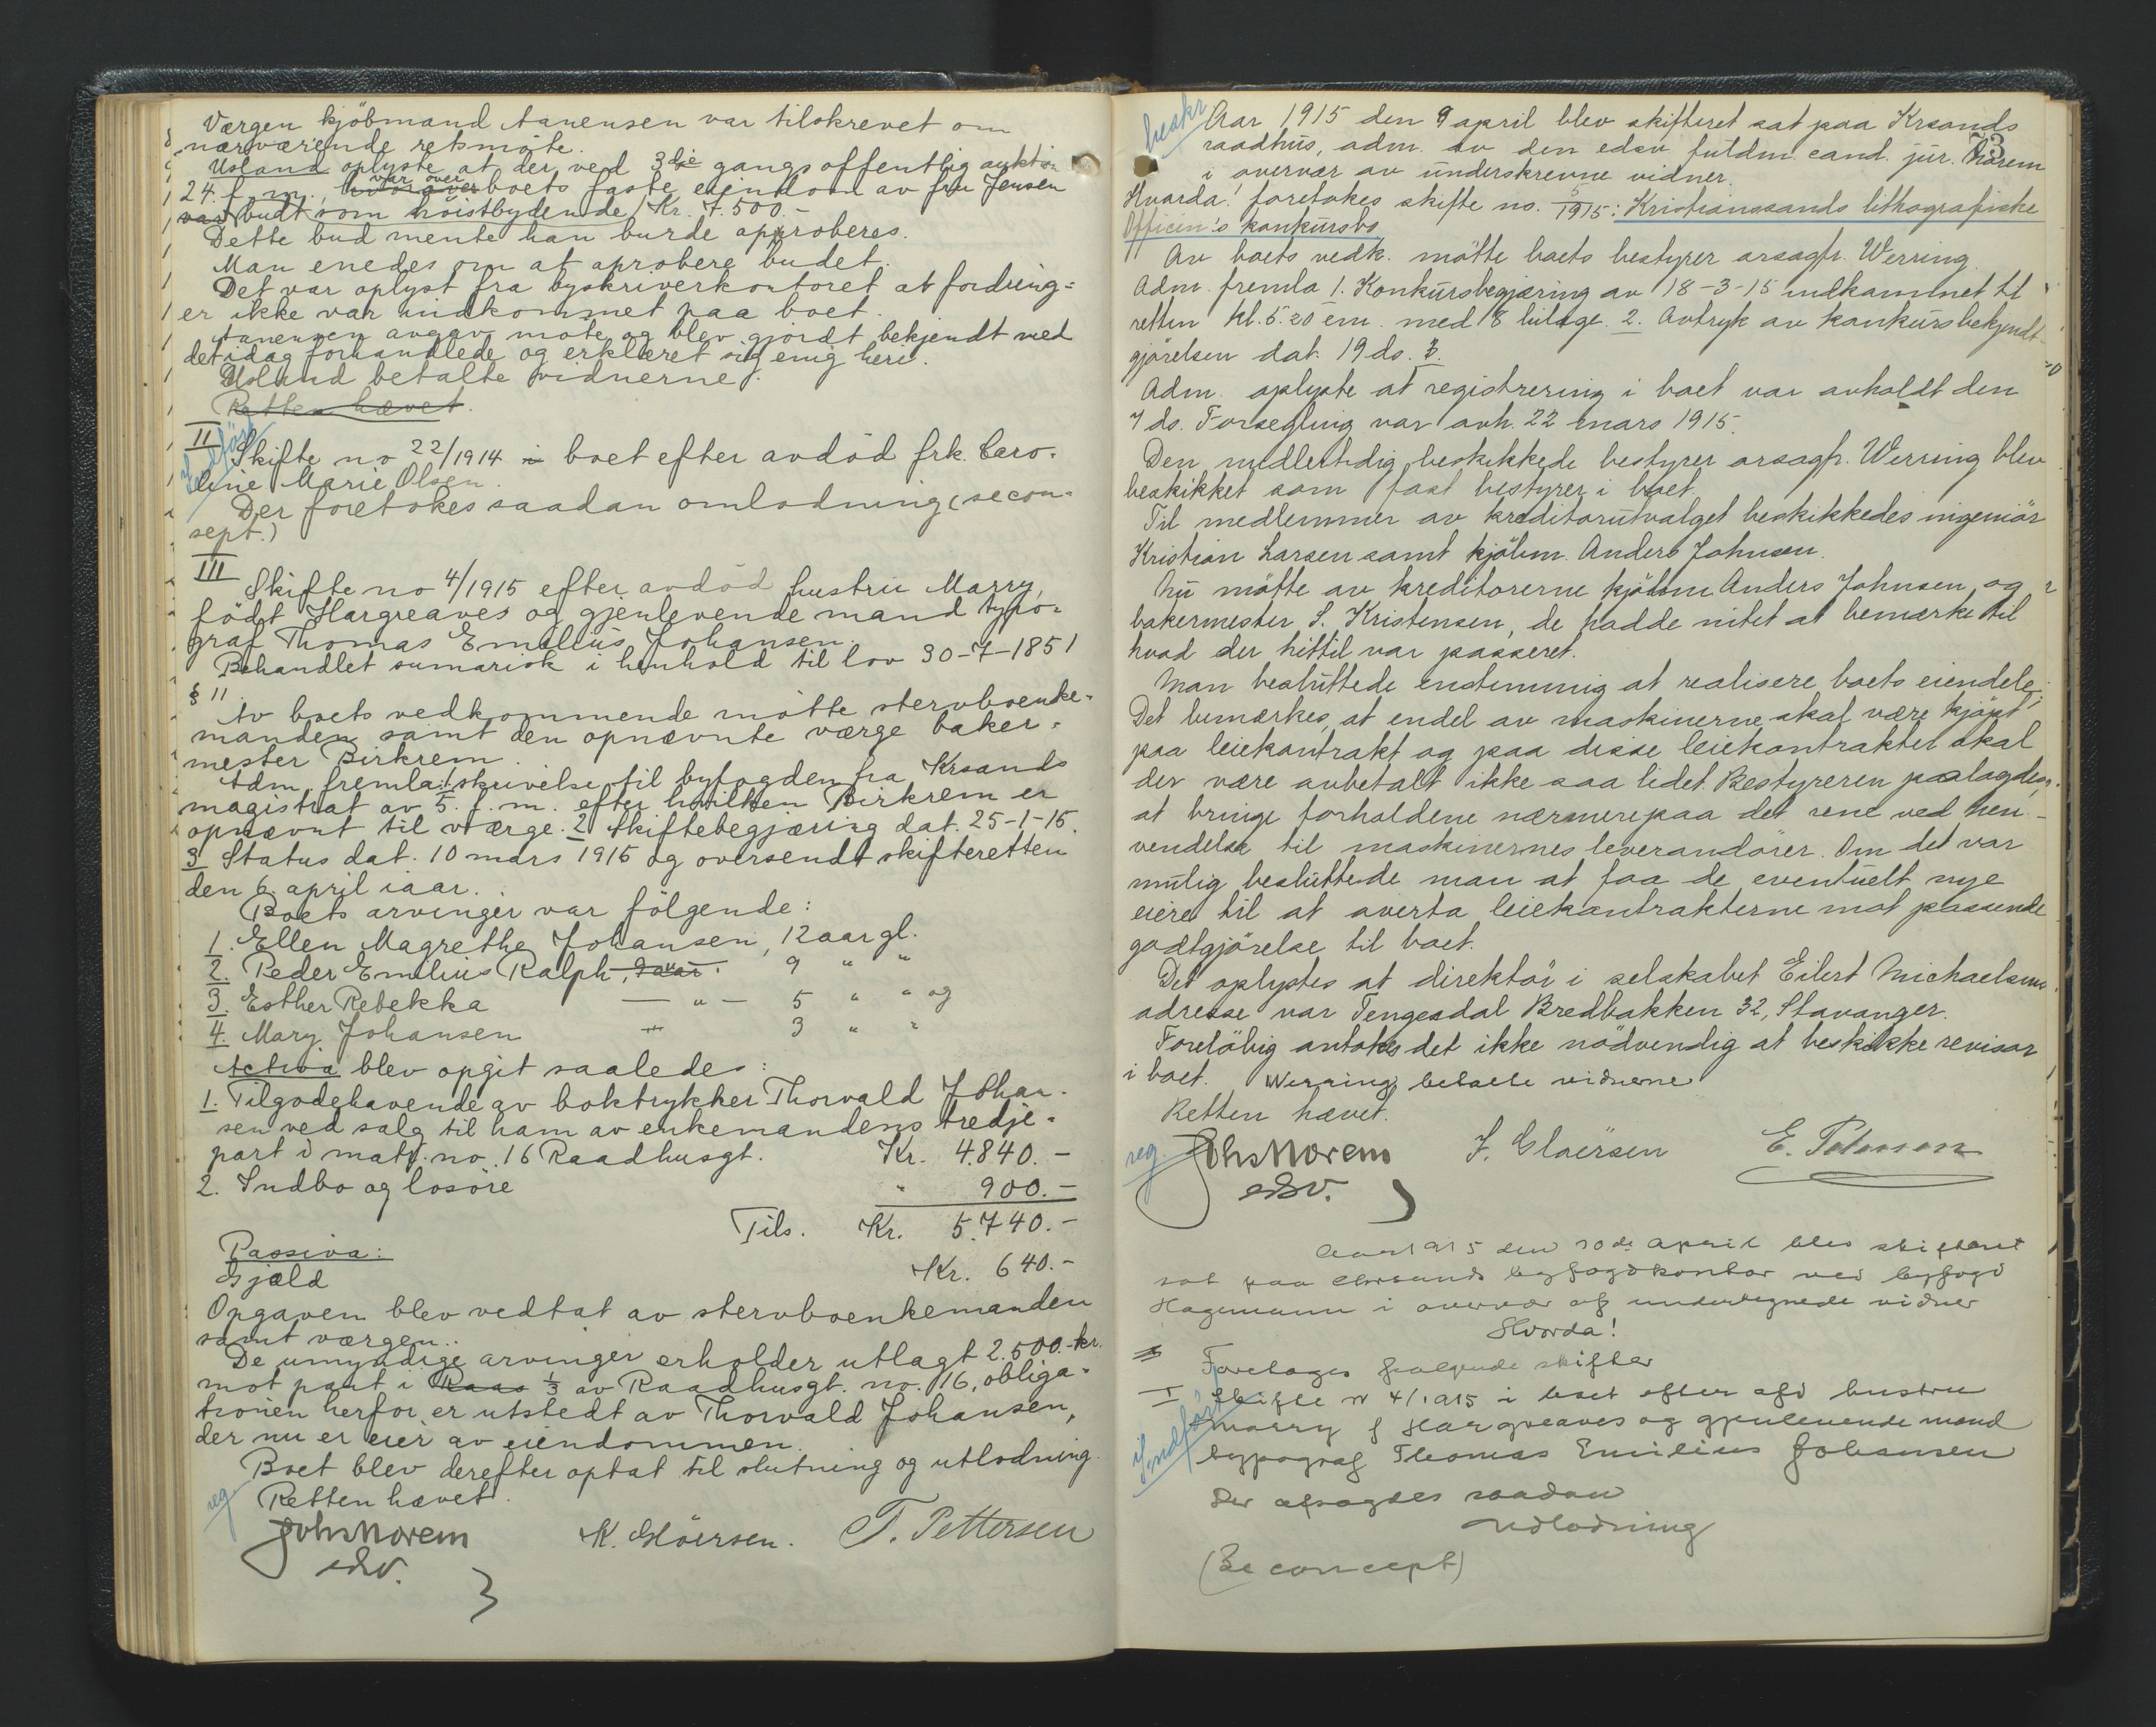 Værgen kjöbmand Aanensen var tilskrevet om
nærværende retsmöte.
Usland oplyste at der ved 3dje gangs offentlig auktion
24. f. m. hvorover var over boets faste eiendom av fru Jensen
var budt som höistbydende Kr. 7.500.-
Dette bud mente han burde approberes.
Man enedes om at aprobere budet.
Det var oplyst fra byskriverkontoret at fordring=
er ikke var indkommet paa boet.
Aanensen avgav møte og blev gjordt bekjendt med
det idag forhandlede og erklæret sig enig heri.
Usland betalte vidnerne.
Retten hævet.
II
Indför
Skifte no 22/1914 i boet efter avdöd frk. Caro-
line Marie Olsen.
Der foretokes saadan omlodning (se con=
sept.)
III
Skifte no 4/1915 efter avdöd hustru Marry,
födt Hargreaves og gjenlevende mand typo=
graf Thomas Emilius Johansen.
Behandlet sumarisk i henhold til lov 30-7-1851
§ 11.
Av boets vedkommende mötte stervboenke=
manden samt den opnævnte værge baker=
mester Birkrem.
Adm. fremla: 1 skrivelse til byfogden fra Krsands
magistrat av 5. f. m. efter hvilken Birkrem er
opnævnt til værge. 2 Skiftebegjæring dat. 25-1-15.
3 Status dat. 10 mars 1915 og oversendt skifteretten
den 6. april iaar.
Boets arvinger var fölgende:
1. Ellen Magrethe Johansen, 12 aar gl.
2. Peder Emilius Ralph, 9 aar. 9 " "
3. Esther Rebekka — " — 5 " " og
4. Mary Johansen — " — 3 " "
Activa blev opgit saaledes:
1. Tilgodehavende av boktrykker Thorvald Johan-
sen ved salg til ham av enkemandens tredje=
part i matr. no. 16 Raadhusgt. Kr. 4.840.-
2. Indbo og lösöre " 900.-
Tils. Kr. 5.740.-
Passiva:
Gjæld Kr. 640.-
Opgaven blev vedtat av stervboenkemanden
samt værgen.
De umyndige arvinger erholder utlagt 2.500.- kr.
mot pant i Raas 1/3 av Raadhusgt. no. 16, obliga=
tionen herfor er utstedt av Thorvald Johansen,
der nu er eier av eiendommen.
Boet blev derefter optat til slutning og utlodning.
reg. Retten hævet.
Johs Norem K. Glöersen. T. Pettersen
edsv.
73
beskr
Aar 1915 den 9 april blev skifteret sat paa Krsands
raadhus, adm. av den edsv. fuldm. cand. jur. Norem
i overvær av underskrevne vidner.
Hvorda! foretokes skifte no. 5/1915: Kristianssands lithografiske
Officin's konkursbo
Av boets vedk. mötte boets bestyrer orsagfr. Werring.
Adm. fremla 1. Konkursbegjæring av 18-3-15 indkommet til
retten kl. 5.20 em. med 8 bilage. 2. Avtryk av konkursbekjendt-
gjörelsen dat. 19 ds. 3.
Adm. oplyste at registrering i boet var avholdt den
7 ds. Forsegling var avh. 22 mars 1915.
Den midlertidig beskikkede bestyrer orsagfr. Werring blev
beskikket som fast bestyrer i boet.
Til medlemmer av kreditorutvalget beskikkedes ingeniör
Kristian Larsen samt kjöbm. Anders Johnsen.
Nu mötte av kreditorerne kjöbm Anders Johnsen og
bakermester S. Kristensen, de hadde intet at bemærke til
hvad der hittil var passeret.
Man besluttede enstemmig at realisere boets eiendele;
Det bemærkes, at endel av maskinerne skal være kjöpt
paa leiekontrakt og paa disse leiekontrakter skal
der være avbetalt ikke saa lidet. Bestyreren paalagdes,
at bringe forholdene nærmere paa det rene ved hen-
vendelse til maskinernes leverandörer. Om det var
mulig besluttede man at faa de eventuelt nye
eiere til at overta leiekontrakterne mot passende
godtgjörelse til boet.
Det oplystes at direktör i selskabet Eilert Michaelsens
adresse var Tengesdal Bredbakken 32, Stavanger.
Forelöbig antokes det ikke nödvendig at beskikke revisor
i boet. Werring betalte vidnerne
Retten hævet.
reg. Johs Norem J. Gloërsen E. Petersen
edsv.
Aar 1915 den 10de April blev skifteret
sat paa Chrsands byfogdkontor ved byfogd
Hagemann i overvær af undertegnede vidner
Hvorda!
Foretages følgende skifter
I Skifte nr 4/1915 i boet efter afd hustru
Indfört
Marry f Hargreaves og gjenlevende mand
typograf Thomas Emilius Johansen
Der afsagdes saadan
Udlodning
(Se concept)